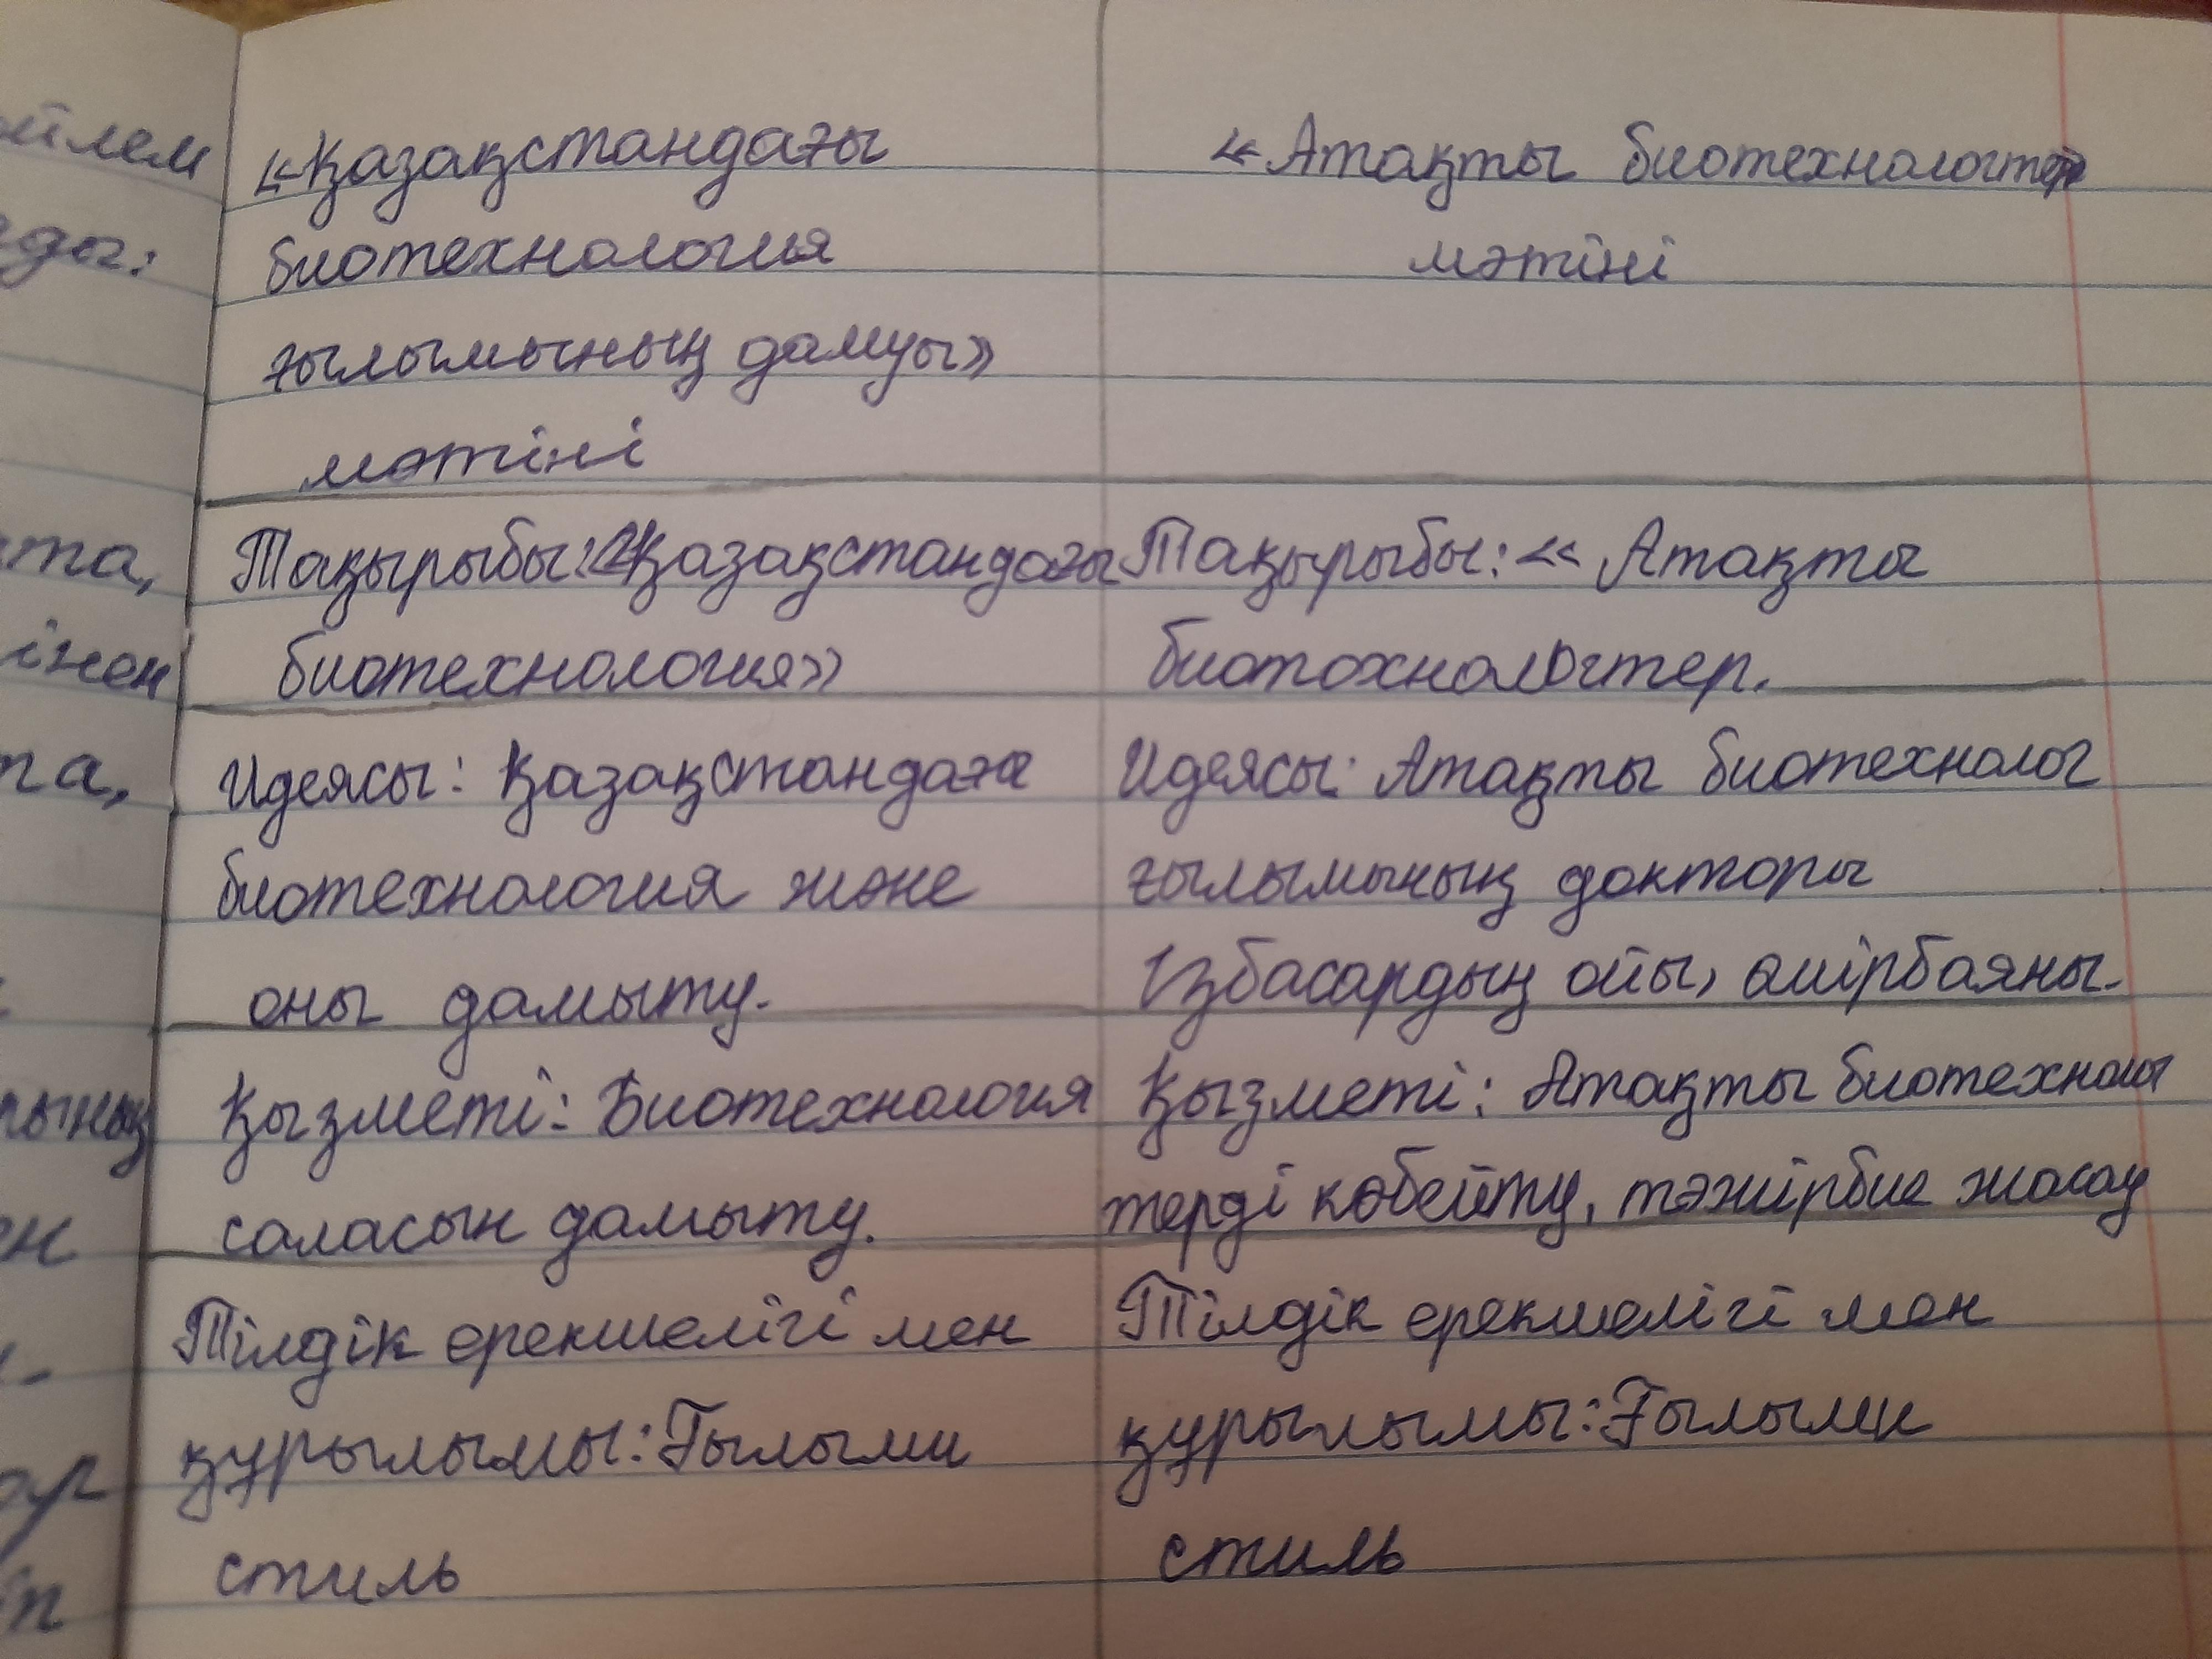 «Қазақстандағы
биотехнология
ғылымының дамуы»
мәтіні
Тақырыбы: «Қазақстандағы
биотехнология»
Идеясы: Қазақстандағы
биотехнология және
оны дамыту.
Қызметі: Биотехнология
саласын дамыту.
Тілдік ерекшелігі мен
құрылымы: Ғылыми
стиль
«Атақты биотехнологтер
мәтіні
Тақырыбы: « Атақты
биотохнологтер.
Идеясы: Атақты биотехнолог
ғылымының докторы
Ізбасардың ойы, өмірбаяны.
Қызметі: Атақты биотехноло
терді көбейту, тәжірбие жасау
Тілдік ерекшелігі мен
құрылымы: Ғылыми
стиль